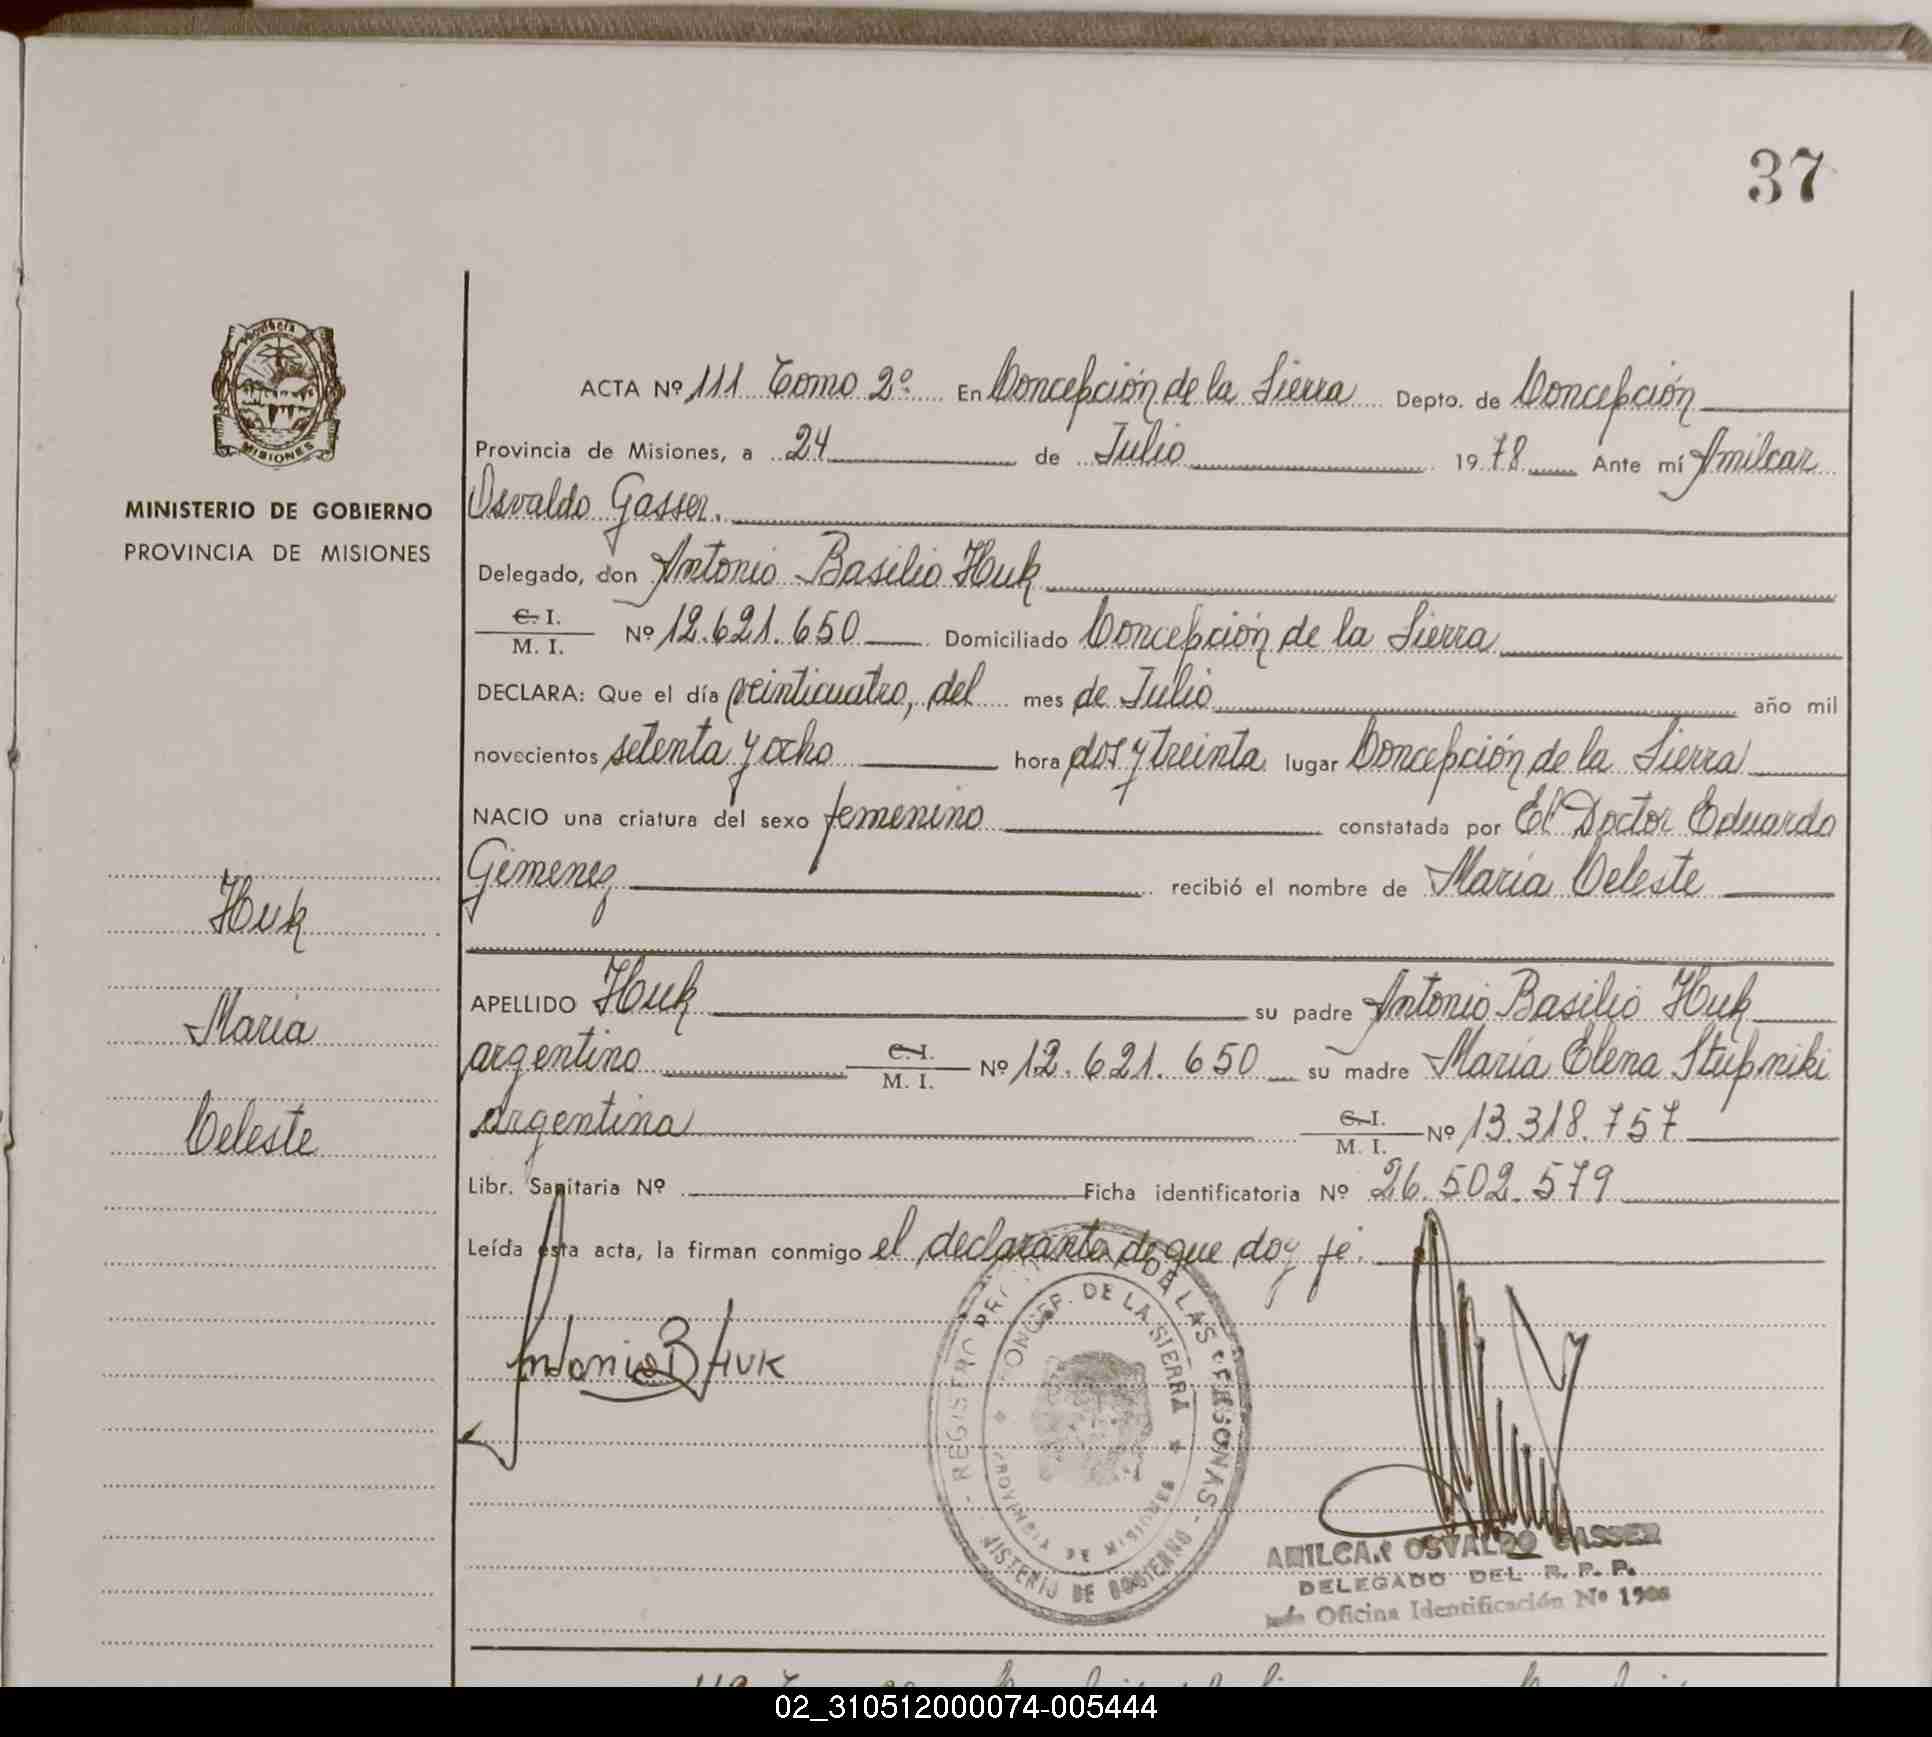 37
MISIONES
MINISTERIO DE GOBIERNO
PROVINCIA DE MISIONES
Huk
Maria
Celeste
ACTA Nº 111 Tomo 2º En Concepción de la Sierra Depto. de Concepción
Provincia de Misiones, a 24 de Julio 1978 Ante mí Amilcar
Osvaldo Gasser.
Delegado, don Antonio Basilio Huk
C. I.
M. I. Nº 12.621.650 Domiciliado Concepción de la Sierra
DECLARA: Que el día veinticuatro, del mes de Julio año mil
novecientos setenta y ocho hora dos y treinta lugar Concepción de la Sierra
NACIO una criatura del sexo femenino constatada por El Doctor Eduardo
Gimenez recibió el nombre de Maria Celeste
APELLIDO Huk su padre Antonio Basilio Huk
argentino C. I. M. I. Nº 12.621.650 su madre Maria Elena Stupniki
argentina C. I. M. I. Nº 13.318.757
Libr. Sanitaria Nº Ficha identificatoria Nº 26.502.579
Leída esta acta, la firman conmigo el declarante de que doy fé.
Antonio B HUK
REGISTRO DE LAS PERSONAS
CONCEP. DE LA SIERRA
PROVINCIA DE MISIONES
MINISTERIO DE GOBIERNO
AMILCAR OSVALDO GASSER
DELEGADO DEL R. P. P.
Oficina Identificación Nº
02_310512000074-005444